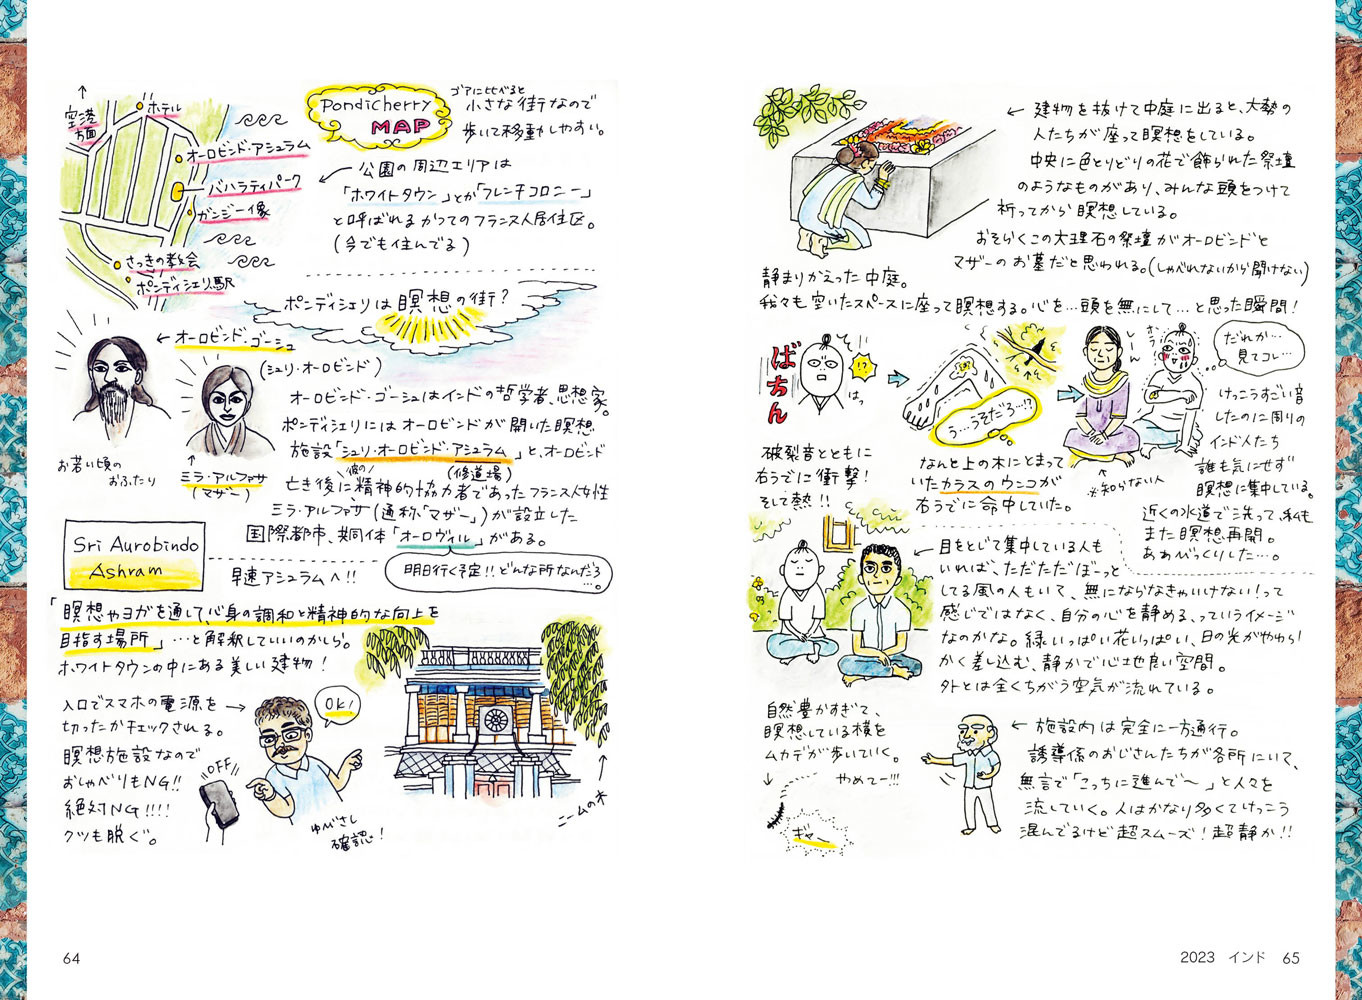 ↑
空港
方面
ホテル
オーロビンド・アシュラム
バハラティパーク
ガンジー像
さっきの教会
ポンディシェリ駅
Pondicherry
MAP
ゴアに比べると
小さな街なので
歩いて移動しやすい。
← 公園の周辺エリアは
「ホワイトタウン」とか「フレンチコロニー」
と呼ばれるかつてのフランス人居住区。
(今でも住んでる)
ポンディシェリは瞑想の街?
← オーロビンド・ゴーシュ
(シュリ・オーロビンド)
お若い頃の
おふたり
↑
ミラ・アルファサ
(マザー)
オーロビンド・ゴーシュはインドの哲学者、思想家。
ポンディシェリにはオーロビンドが開いた瞑想
施設「シュリ・オーロビンド・アシュラム」と、オーロビンド
(修道場)
亡き後に彼の精神的協力者であったフランス人女性
ミラ・アルファサ(通称「マザー」)が設立した
国際都市、共同体「オーロヴィル」がある。
明日行く予定!!どんな所なんだろ…。
Sri Aurobindo
Ashram
早速アシュラムへ!!
「瞑想やヨガを通して、心身の調和と精神的な向上を
目指す場所」…と解釈していいのかしら。
ホワイトタウンの中にある美しい建物!
入口でスマホの電源を →
切ったかチェックされる。
瞑想施設なので
おしゃべりもNG!!
絶対NG!!!!
クツも脱ぐ。
OFF
OK!
ゆびさし
確認!
ニームの木
64
← 建物を抜けて中庭に出ると、大勢の
人たちが座って瞑想をしている。
中央に色とりどりの花で飾られた祭壇
のようなものがあり、みんな頭をつけて
祈ってから瞑想している。
おそらくこの大理石の祭壇がオーロビンドと
マザーのお墓だと思われる。(しゃべれないから聞けない)
静まりかえった中庭。
我々も空いたスペースに座って瞑想する。心を…頭を無にして…と思った瞬間!
ばちん
!?
はっ
破裂音とともに
右うでに衝撃!
そして熱!!
う…うそだろ…!?
なんと上の木にとまって
いたカラスのウンコが
右うでに命中していた。
しーん
※知らない人
だれか…
見てコレ…
けっこうすごい音
したのに周りの
インド人たち
誰も気にせず
瞑想に集中している。
近くの水道で洗って、私も
また瞑想再開。
あぁびっくりした…。
← 目をとじて集中している人も
いれば、ただただぼーっと
してる風の人もいて、無にならなきゃいけない!って
感じではなく、自分の心を静める、っていうイメージ
なのかな。緑いっぱい花いっぱい、日の光がやわら
かく差し込む、静かで心地良い空間。
外とは全くちがう空気が流れている。
自然豊かすぎて、
瞑想している横を
ムカデが歩いていく。
↓ やめてー!!!
ギャー
← 施設内は完全に一方通行。
誘導係のおじさんたちが各所にいて、
無言で「こっちに進んで〜」と人々を
流していく。人はかなり多くてけっこう
混んでるけど超スムーズ!超静か!!
2023 インド 65